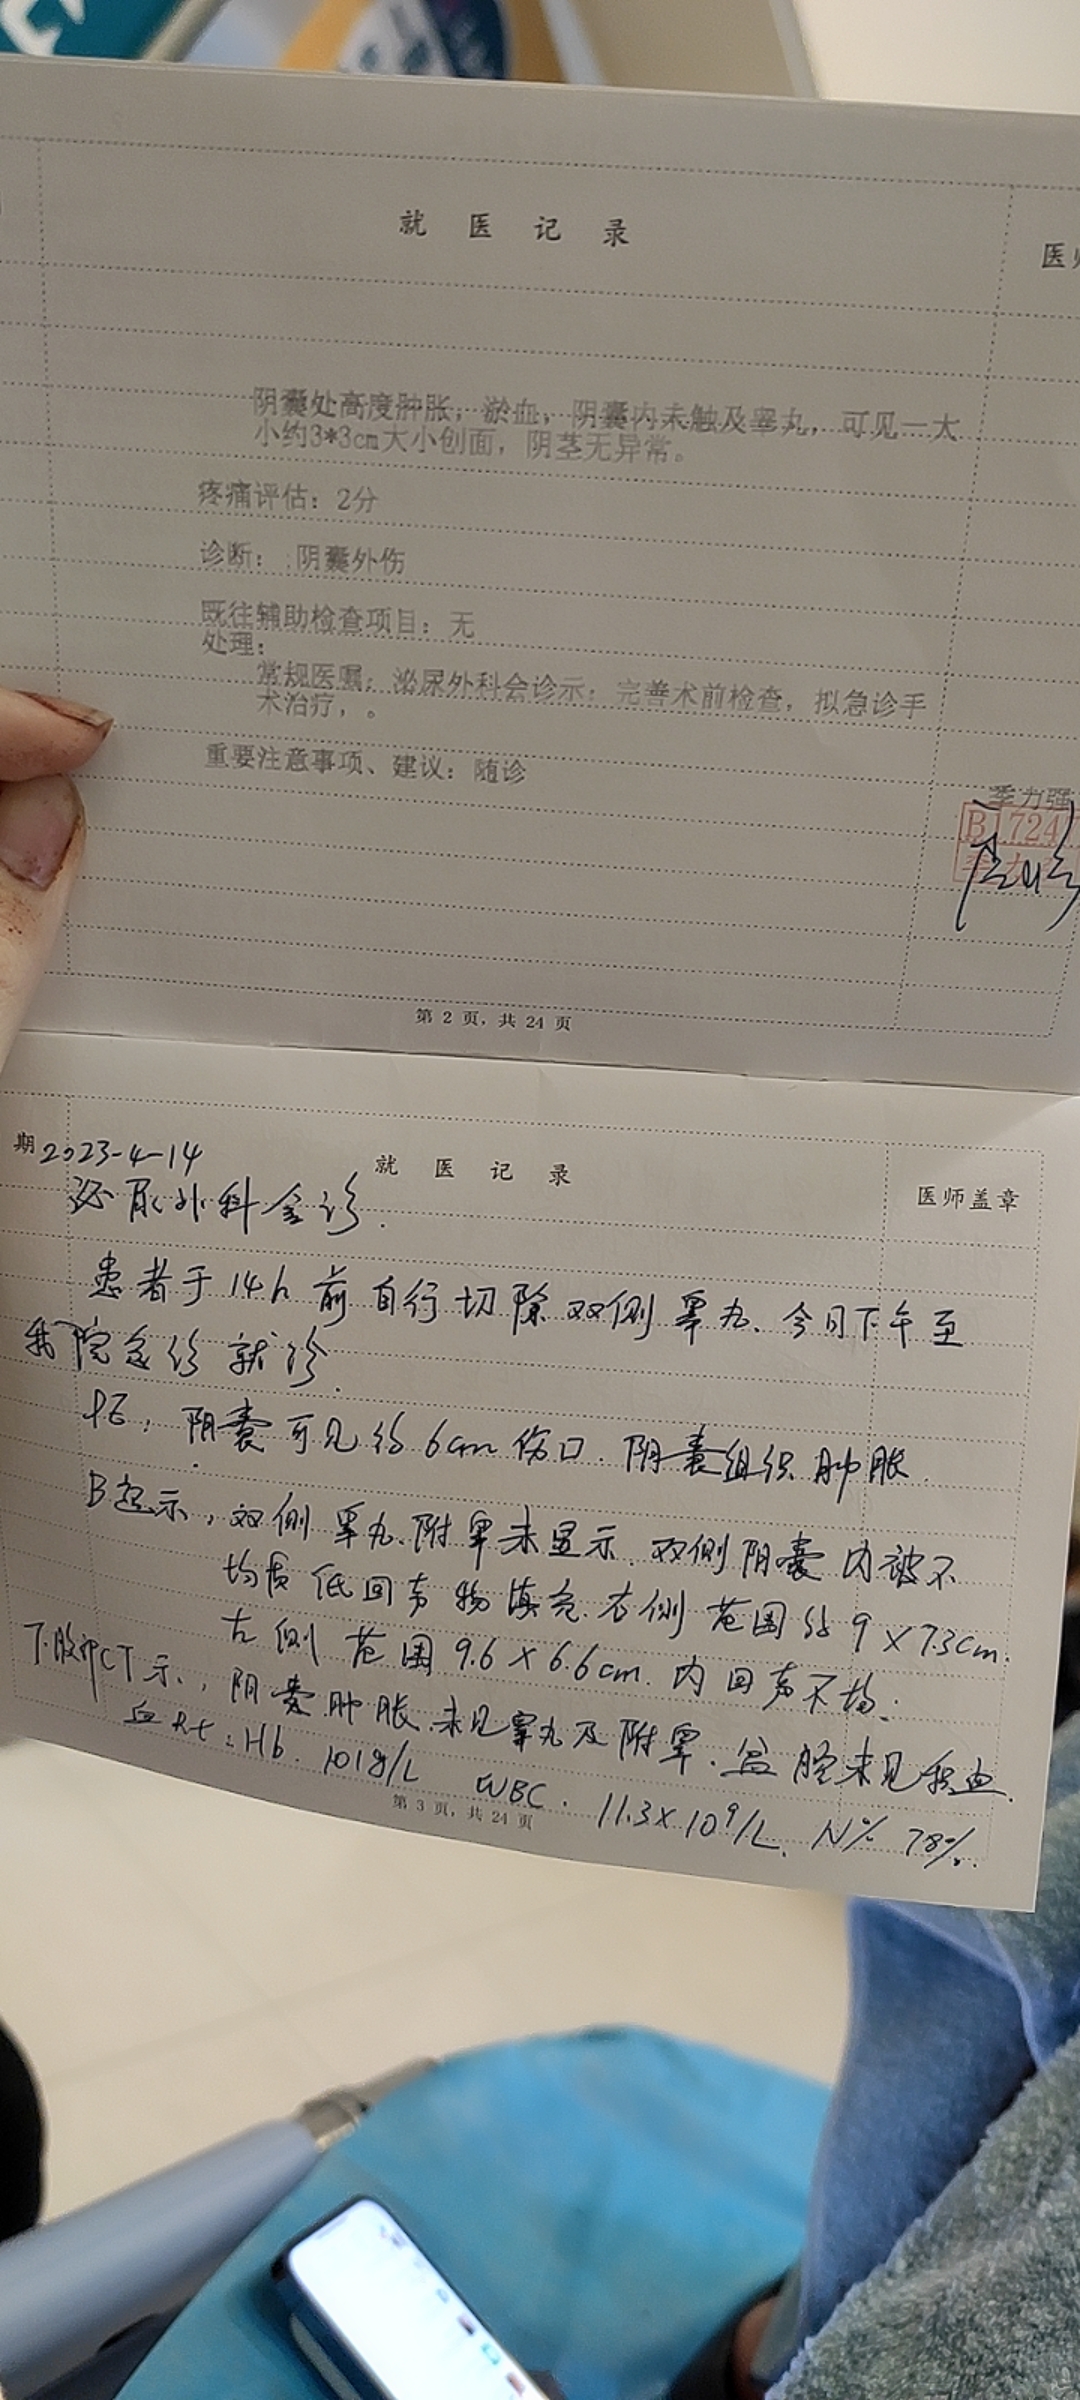 就医记录
医师
阴囊处高度肿胀，淤血，阴囊内未触及睾丸，可见一大
小约3*3cm大小创面，阴茎无异常。
疼痛评估：2分
诊断：阴囊外伤
既往辅助检查项目：无
处理：
常规医嘱：泌尿外科会诊示：完善术前检查，拟急诊手
术治疗，。
重要注意事项、建议：随诊
季力强
B 724
第 2 页，共 24 页
期 2023-4-14
就医记录
医师盖章
泌尿外科会诊.
患者于14h前自行切除双侧睾丸、今日下午至
我院急诊就诊.
PE：阴囊可见约6cm伤口.阴囊组织肿胀.
B超示，双侧睾丸、附睾未显示.双侧阴囊内被不
均质低回声物填充.右侧范围约9×7.3cm.
左侧范围9.6×6.6cm.内回声不均.
下腹部CT示，阴囊肿胀.未见睾丸及附睾.盆腔未见积血.
血Rt：Hb.101g/L WBC.11.3×10⁹/L. N% 78%.
第 3 页，共 24 页